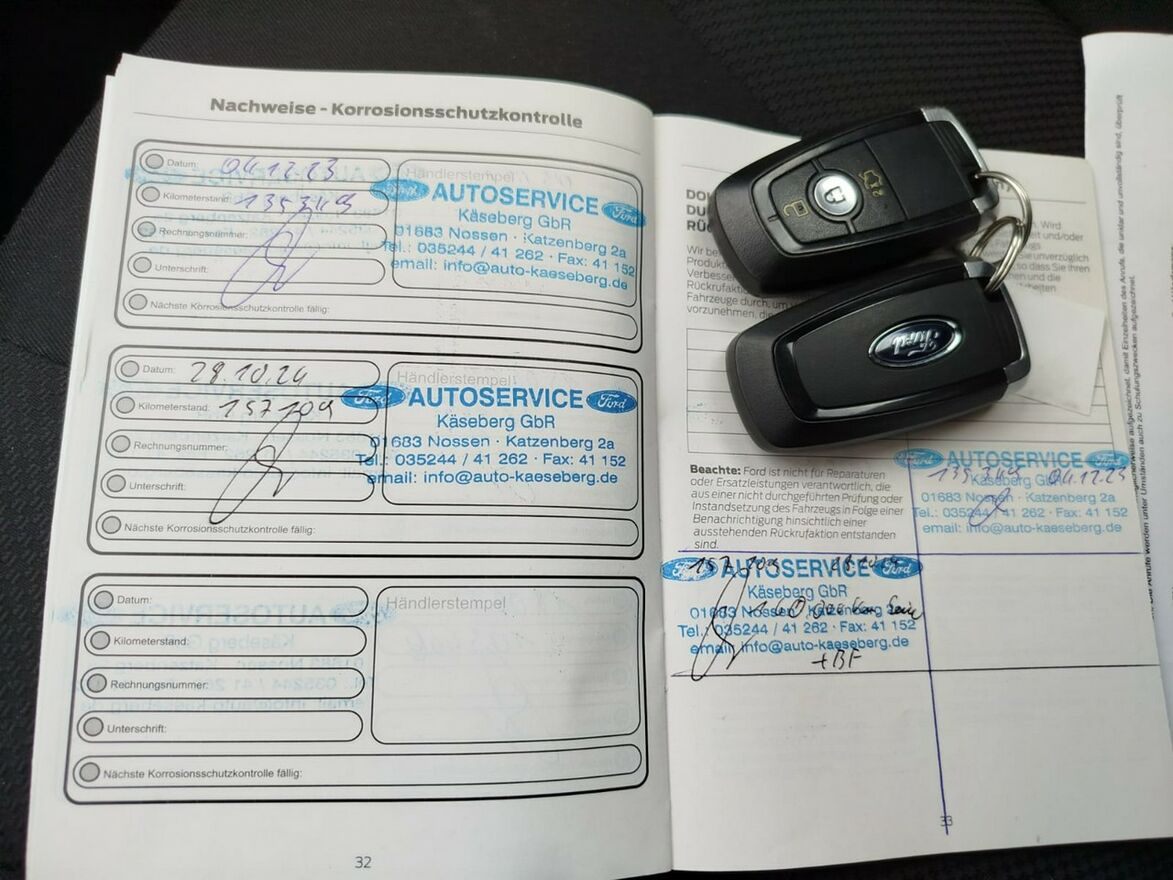 Nachweise - Korrosionsschutzkontrolle
Datum: 04.12.23
Kilometerstand: 135349
Rechnungsnummer:
Unterschrift:
Nächste Korrosionsschutzkontrolle fällig:
Händlerstempel
Ford AUTOSERVICE Ford
Käseberg GbR
01683 Nossen · Katzenberg 2a
Tel.: 035244 / 41 262 · Fax: 41 152
email: info@auto-kaeseberg.de
Datum: 28.10.24
Kilometerstand: 157109
Rechnungsnummer:
Unterschrift:
Nächste Korrosionsschutzkontrolle fällig:
Händlerstempel
Ford AUTOSERVICE Ford
Käseberg GbR
01683 Nossen · Katzenberg 2a
Tel.: 035244 / 41 262 · Fax: 41 152
email: info@auto-kaeseberg.de
Datum:
Kilometerstand:
Rechnungsnummer:
Unterschrift:
Nächste Korrosionsschutzkontrolle fällig:
Händlerstempel
32
Wir
Produkt
Verbesser
Rückrufaktion
Fahrzeuge durch, um
vorzunehmen,
Wird
und/oder
unverzüglich
so dass Sie Ihren
und die
Ford
Beachte: Ford ist nicht für Reparaturen
oder Ersatzleistungen verantwortlich, die
aus einer nicht durchgeführten Prüfung oder
Instandsetzung des Fahrzeugs in Folge einer
Benachrichtigung hinsichtlich einer
ausstehenden Rückrufaktion entstanden
sind.
Ford AUTOSERVICE Ford
135349 04.12.23
Käseberg GbR
01683 Nossen · Katzenberg 2a
Tel.: 035244 / 41 262 · Fax: 41 152
email: info@auto-kaeseberg.de
Ford AUTOSERVICE Ford
Käseberg GbR
01683 Nossen · Katzenberg 2a
Tel.: 035244 / 41 262 · Fax: 41 152
email: info@auto-kaeseberg.de
+BF
33